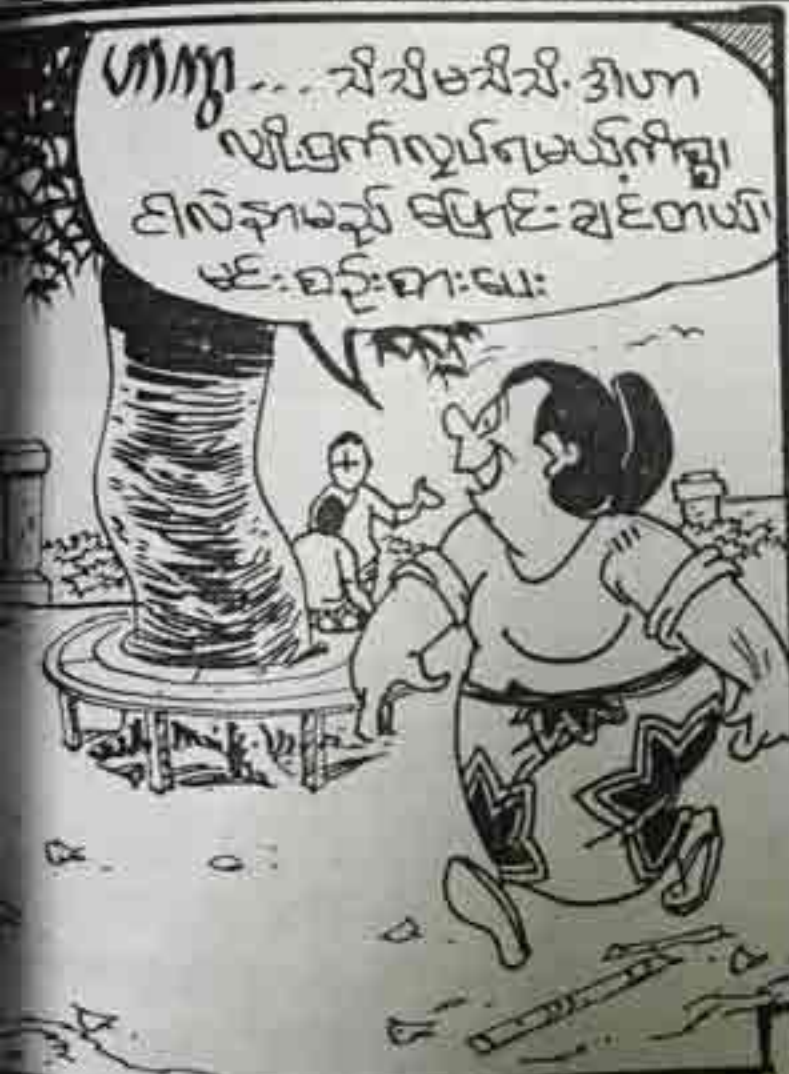 ဟာကွာ... သိသိမသိသိ. ဒါဟာ
လျှို့ဝှက်လုပ်ရမယ့်ကိစ္စ၊
ငါလဲနာမည် ပြောင်းချင်တယ်၊
မင်းစဉ်းစားပေး